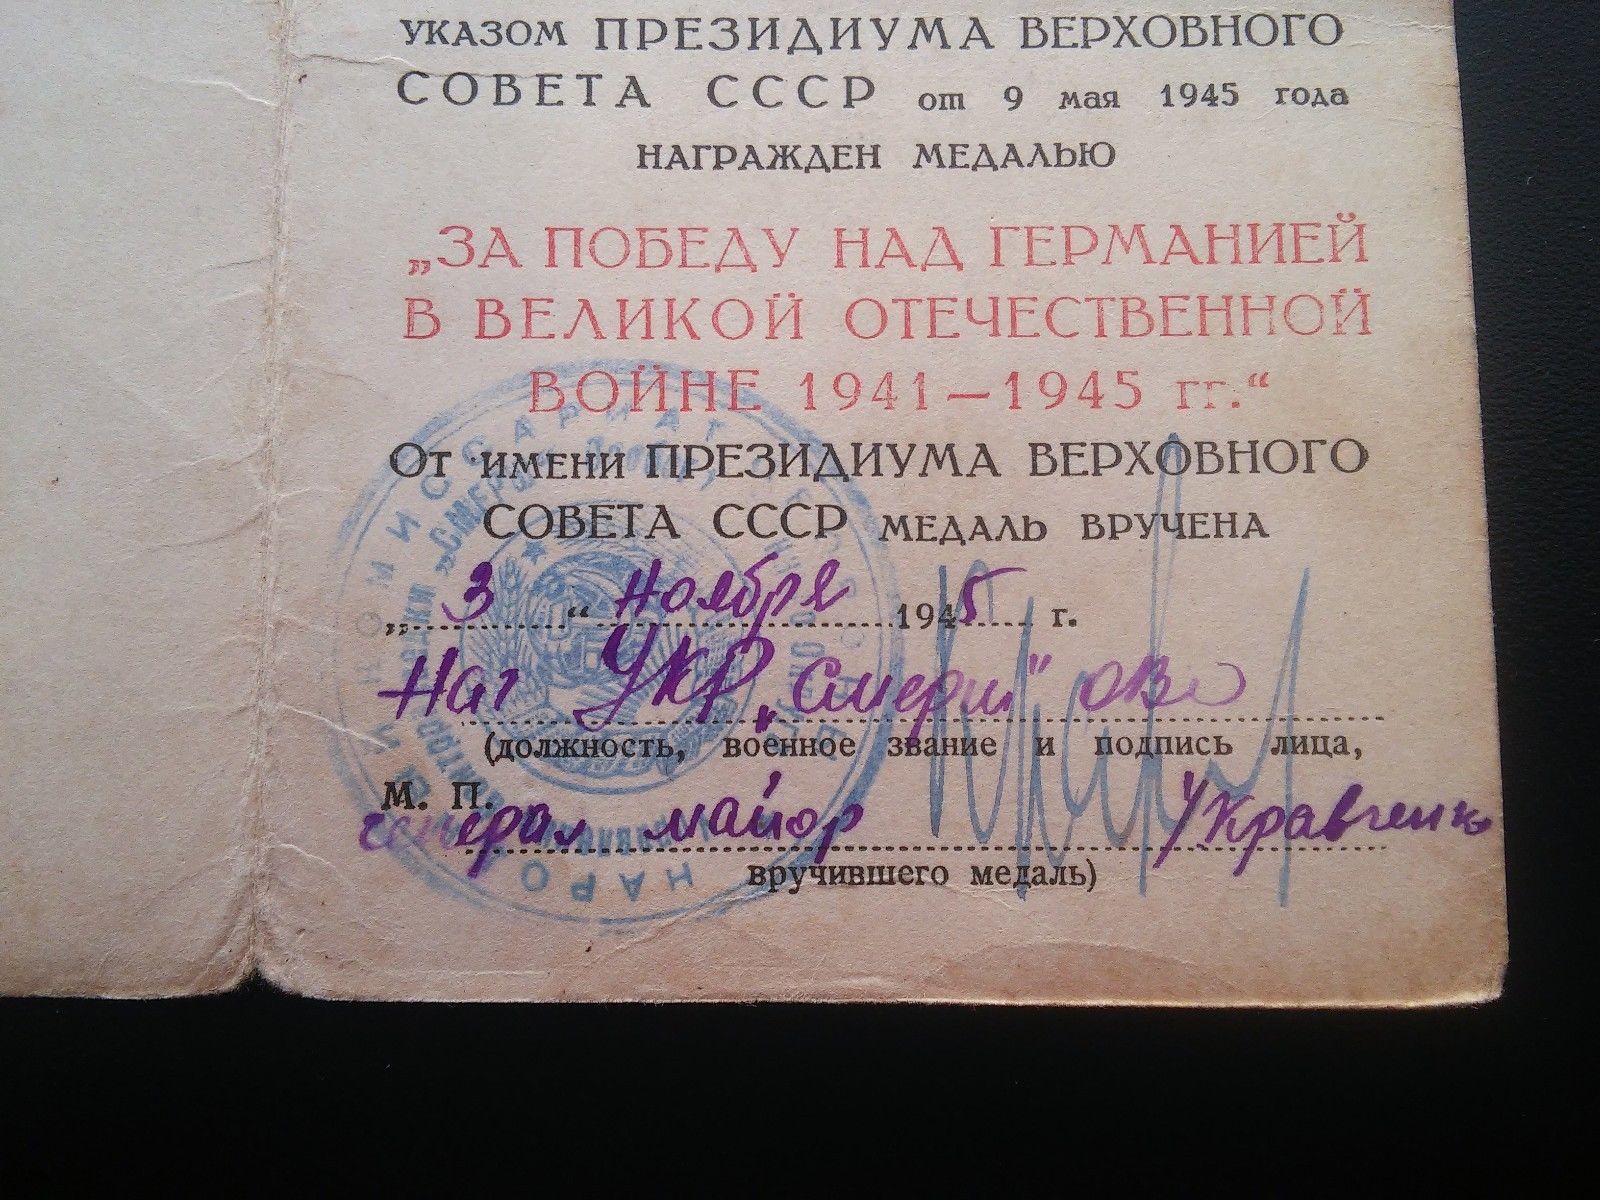 УКАЗОМ ПРЕЗИДИУМА ВЕРХОВНОГО
СОВЕТА СССР от 9 мая 1945 года
НАГРАЖДЕН МЕДАЛЬЮ
„ЗА ПОБЕДУ НАД ГЕРМАНИЕЙ
В ВЕЛИКОЙ ОТЕЧЕСТВЕННОЙ
ВОЙНЕ 1941—1945 гг.“
От имени ПРЕЗИДИУМА ВЕРХОВНОГО
СОВЕТА СССР МЕДАЛЬ ВРУЧЕНА
„3“ ноября 1945 г.
Нач УКР „Смерш" ОВО
(должность, военное звание и подпись лица,
М. П.
генерал майор /Кравченко
вручившего медаль)